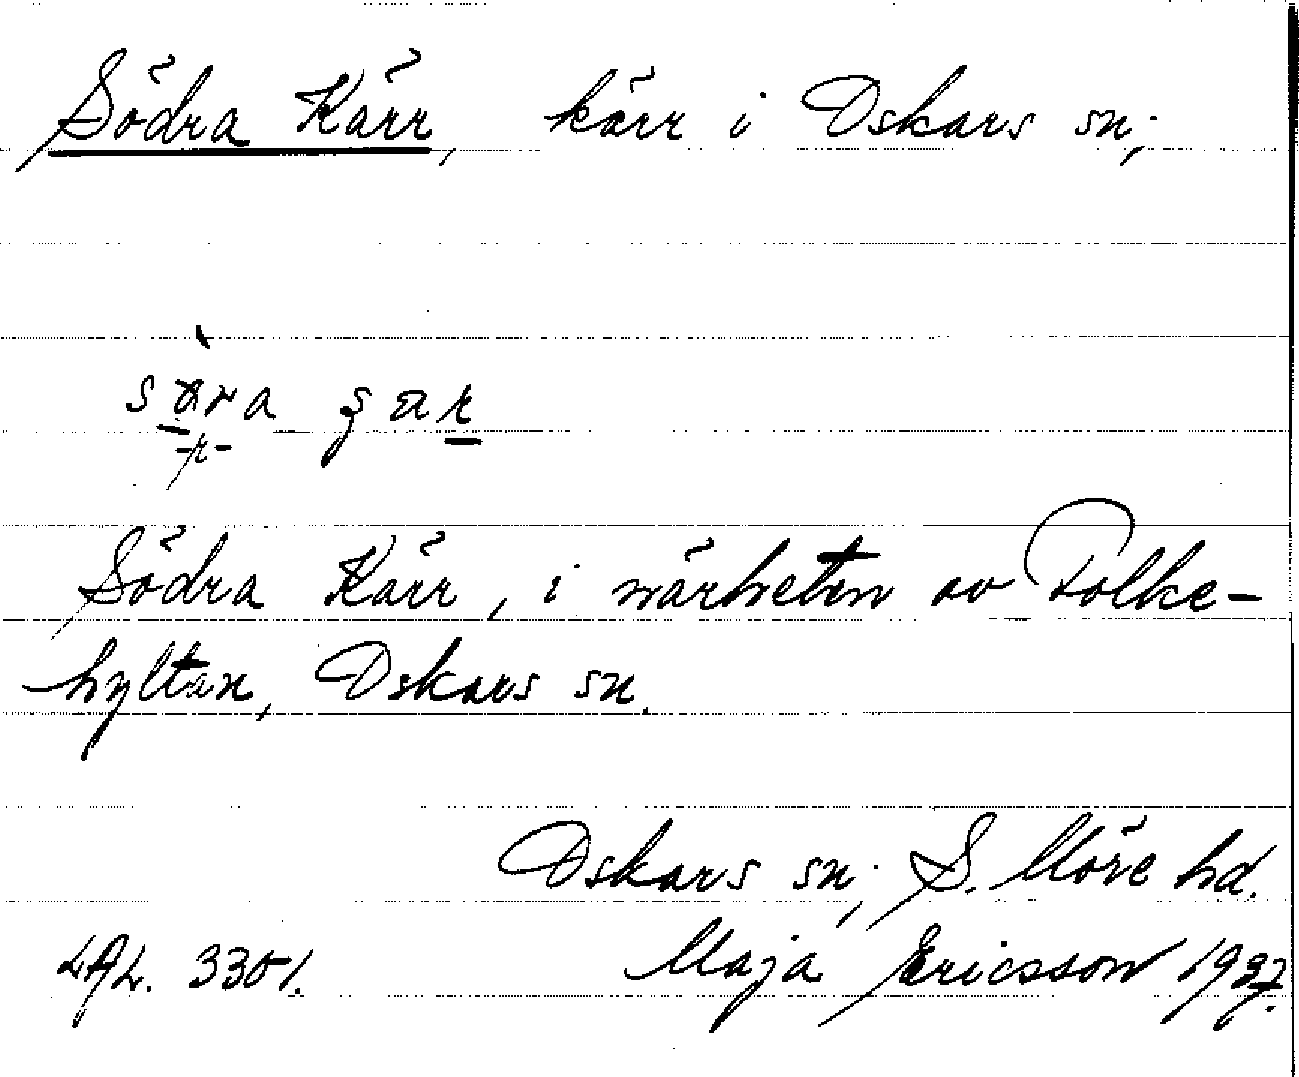 Södra Kärr, kärr i Oskars sn;
Södra Kärr, i närheten av Folke-
hyltan, Oskars sn.
Oskars sn; S. Möre hd.
LAL. 3301. Maja Ericsson 1937.